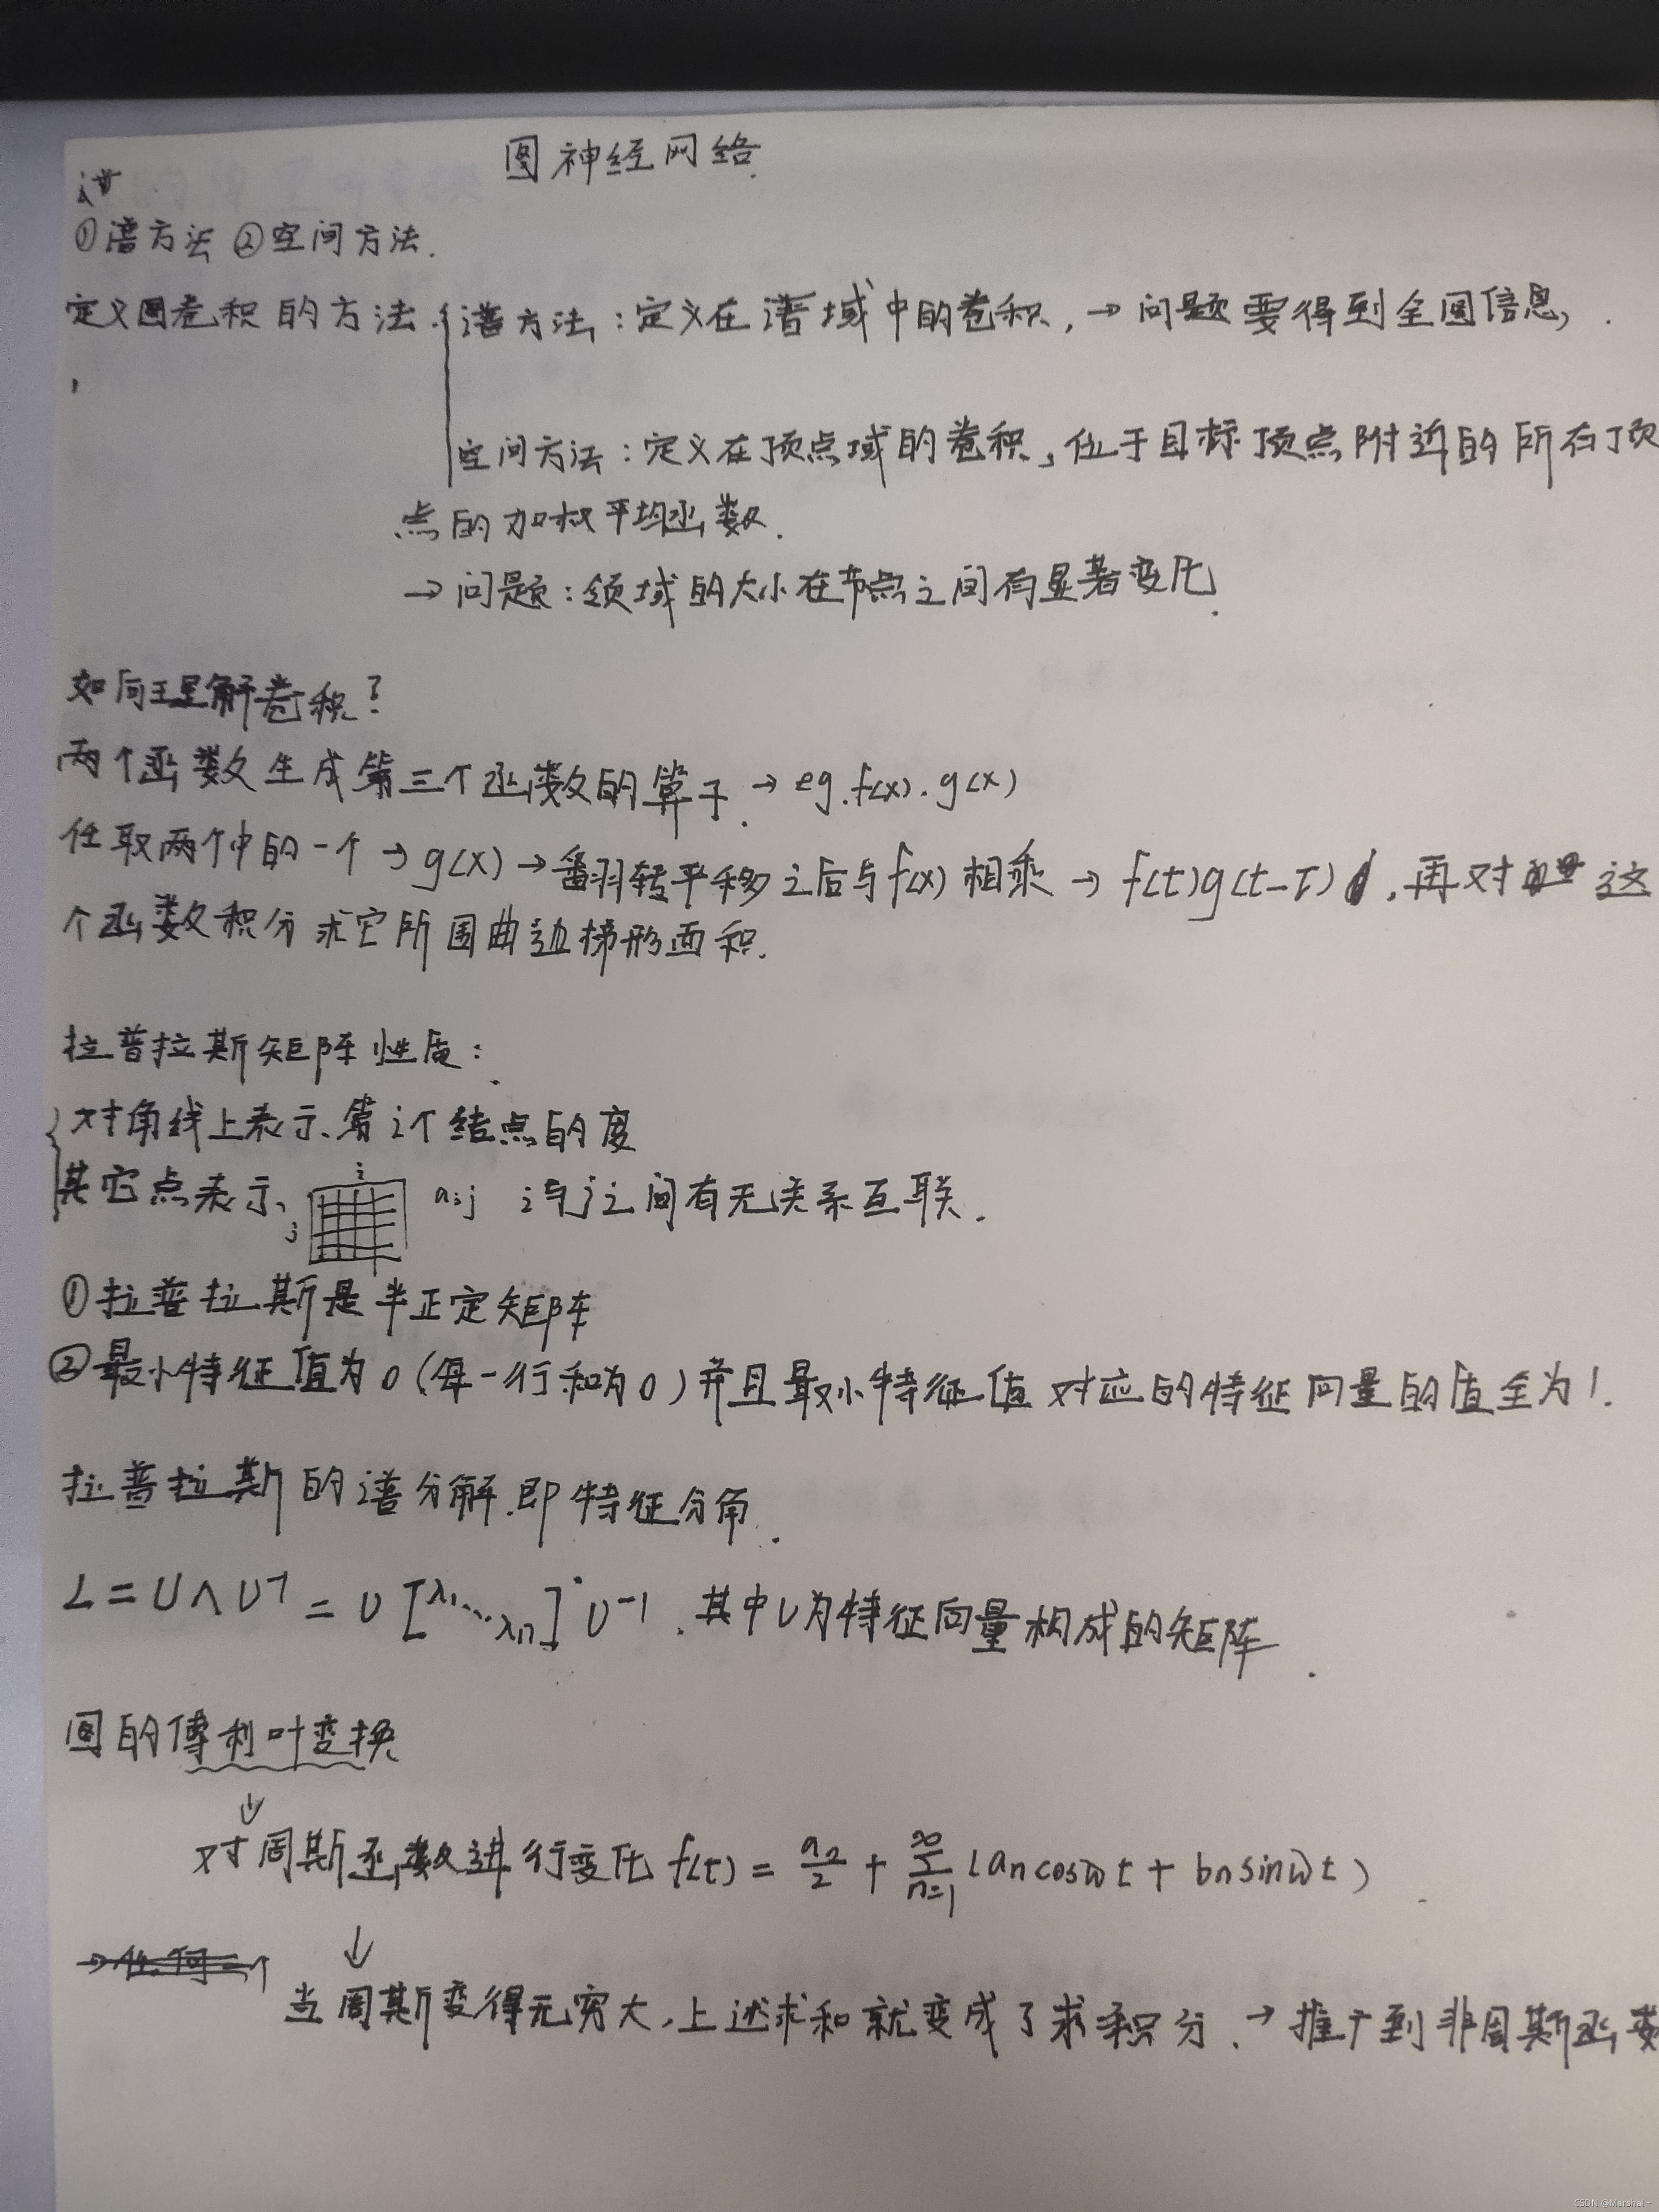 图神经网络.
①谱方法 ②空间方法.
定义图卷积的方法. 谱方法:定义在谱域中的卷积, → 问题要得到全图信息,
空间方法:定义在顶点域的卷积, 位于目标顶点附近的所有顶
点的加权平均函数.
→ 问题:领域的大小在节点之间有显著变化.
如何理解卷积?
两个函数生成第三个函数的算子. → eg. f(x). g(x)
任取两个中的一个 → g(x) → 翻转平移之后与f(x)相乘 → f(t)g(t-τ) , 再对 这
个函数积分求它所围曲边梯形面积.
拉普拉斯矩阵性质:
对角线上表示第i个结点的度
其它点表示
i
j
aij i与j之间有无关系互联.
①拉普拉斯是半正定矩阵
②最小特征值为0(每一行和为0)并且最小特征值对应的特征向量的值全为1.
拉普拉斯的谱分解.即特征分角.
L = U Λ U⁻¹ = U [λ1 ... λn] U⁻¹. 其中U为特征向量构成的矩阵.
图的傅利叶变换
↓
对周斯函数进行变化 f(t) = a0/2 + ∞Σn=1 (an cosωt + bn sinωt)
↓
当周斯变得无穷大,上述求和就变成了求积分. → 推广到非周斯函数
CSDN @Marshal~